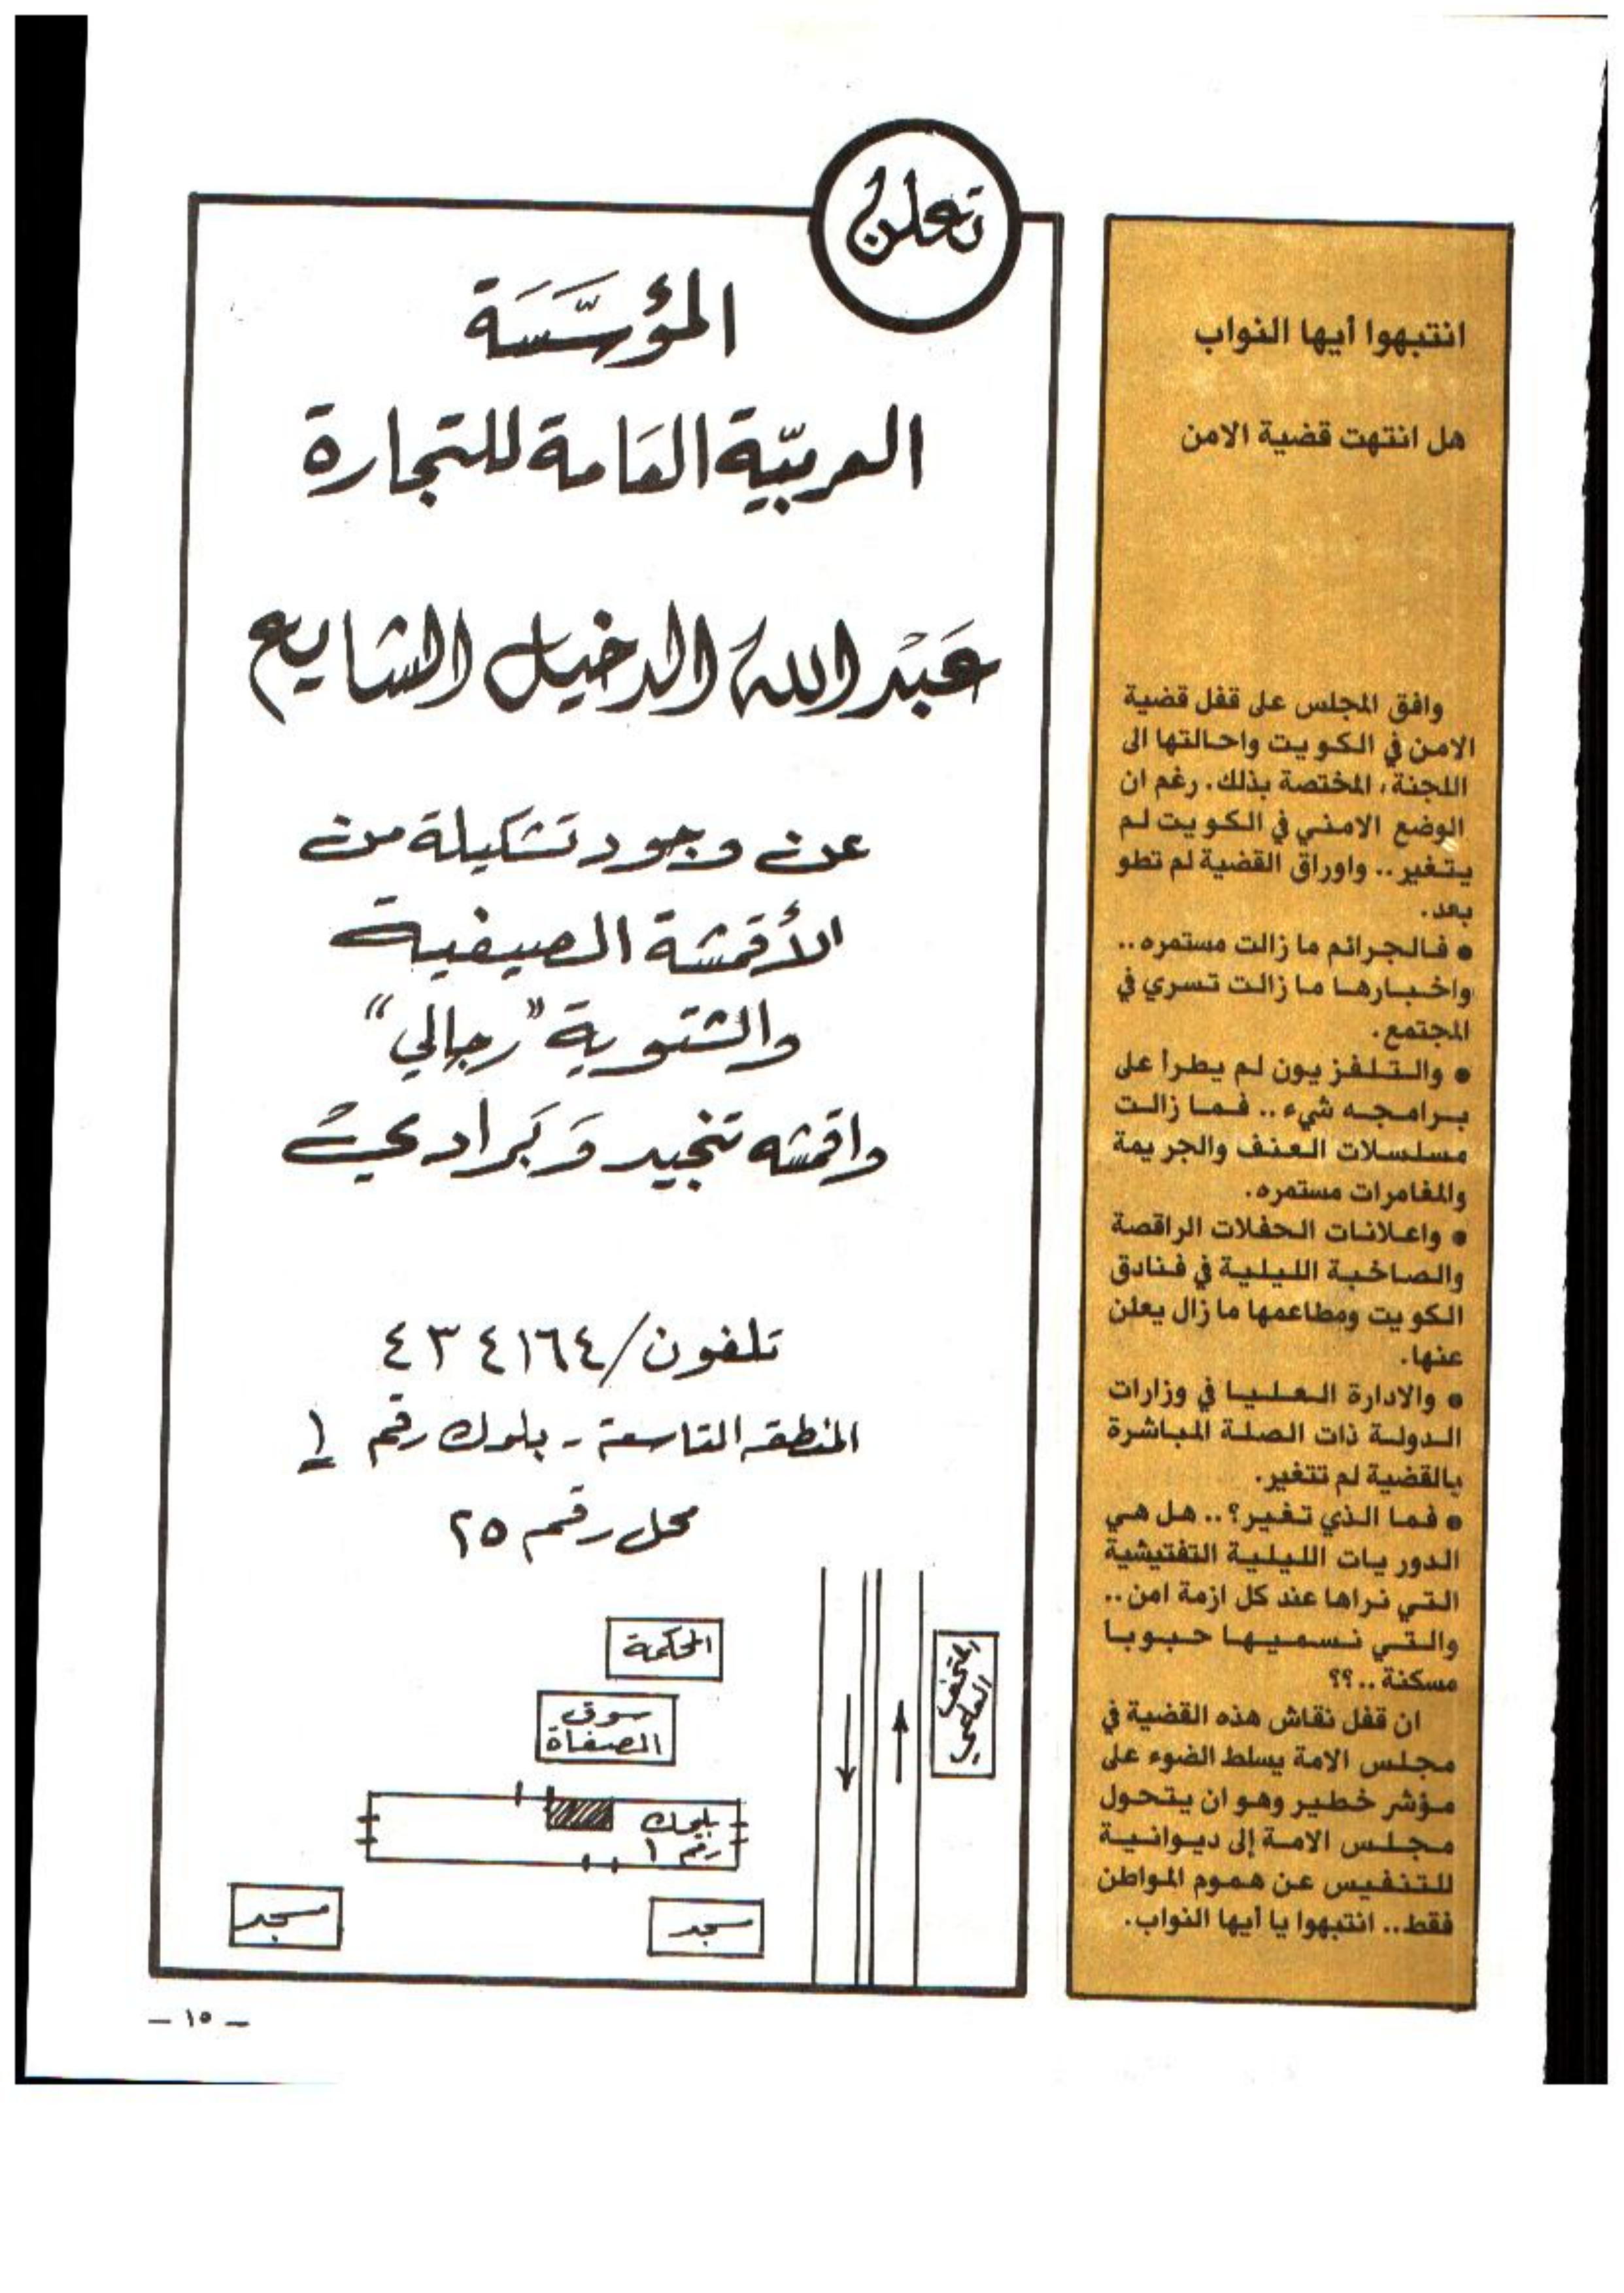 انتبهوا أيها النواب
هل انتهت قضية الامن
وافق المجلس على قفل قضية
الامن في الكويت واحالتها الى
اللجنة، المختصة بذلك. رغم ان
الوضع الامني في الكويت لم
يتغير.. واوراق القضية لم تطو
بعد.
• فالجرائم ما زالت مستمره..
واخبارها ما زالت تسري في
المجتمع.
• والتلفزيون لم يطرأ على
برامجه شيء.. فما زالت
مسلسلات العنف والجريمة
والمغامرات مستمره.
• واعلانات الحفلات الراقصة
والصاخبة الليلية في فنادق
الكويت ومطاعمها ما زال يعلن
عنها.
• والادارة العليا في وزارات
الدولة ذات الصلة المباشرة
بالقضية لم تتغير.
• فما الذي تغير؟.. هل هي
الدوريات الليلية التفتيشية
التي نراها عند كل ازمة امن..
والتي نسميها حبوبا
مسكنة..؟؟
ان قفل نقاش هذه القضية في
مجلس الامة يسلط الضوء على
مؤشر خطير وهو ان يتحول
مجلس الامة إلى ديوانية
للتنفيس عن هموم المواطن
فقط.. انتبهوا يا أيها النواب.
تعلن
المؤسَّسَة
العربيّة العَامة للتجارة
عَبْد الله الدخيل الشايع
عن وجود تشكيلة من
الأقمشة الصيفية
والشتوية "رجالي"
واقمشه تنجيد وَبَرادي
تلفون/٤٣٤١٦٤
المنطقه التاسعة - بلوك رقم ١
محل رقم ٢٥
المحكمة
سوق
الصفاة
المتحف
العلمي
بلوك
رقم ١
مسجد
مسجد
– ١٥ –